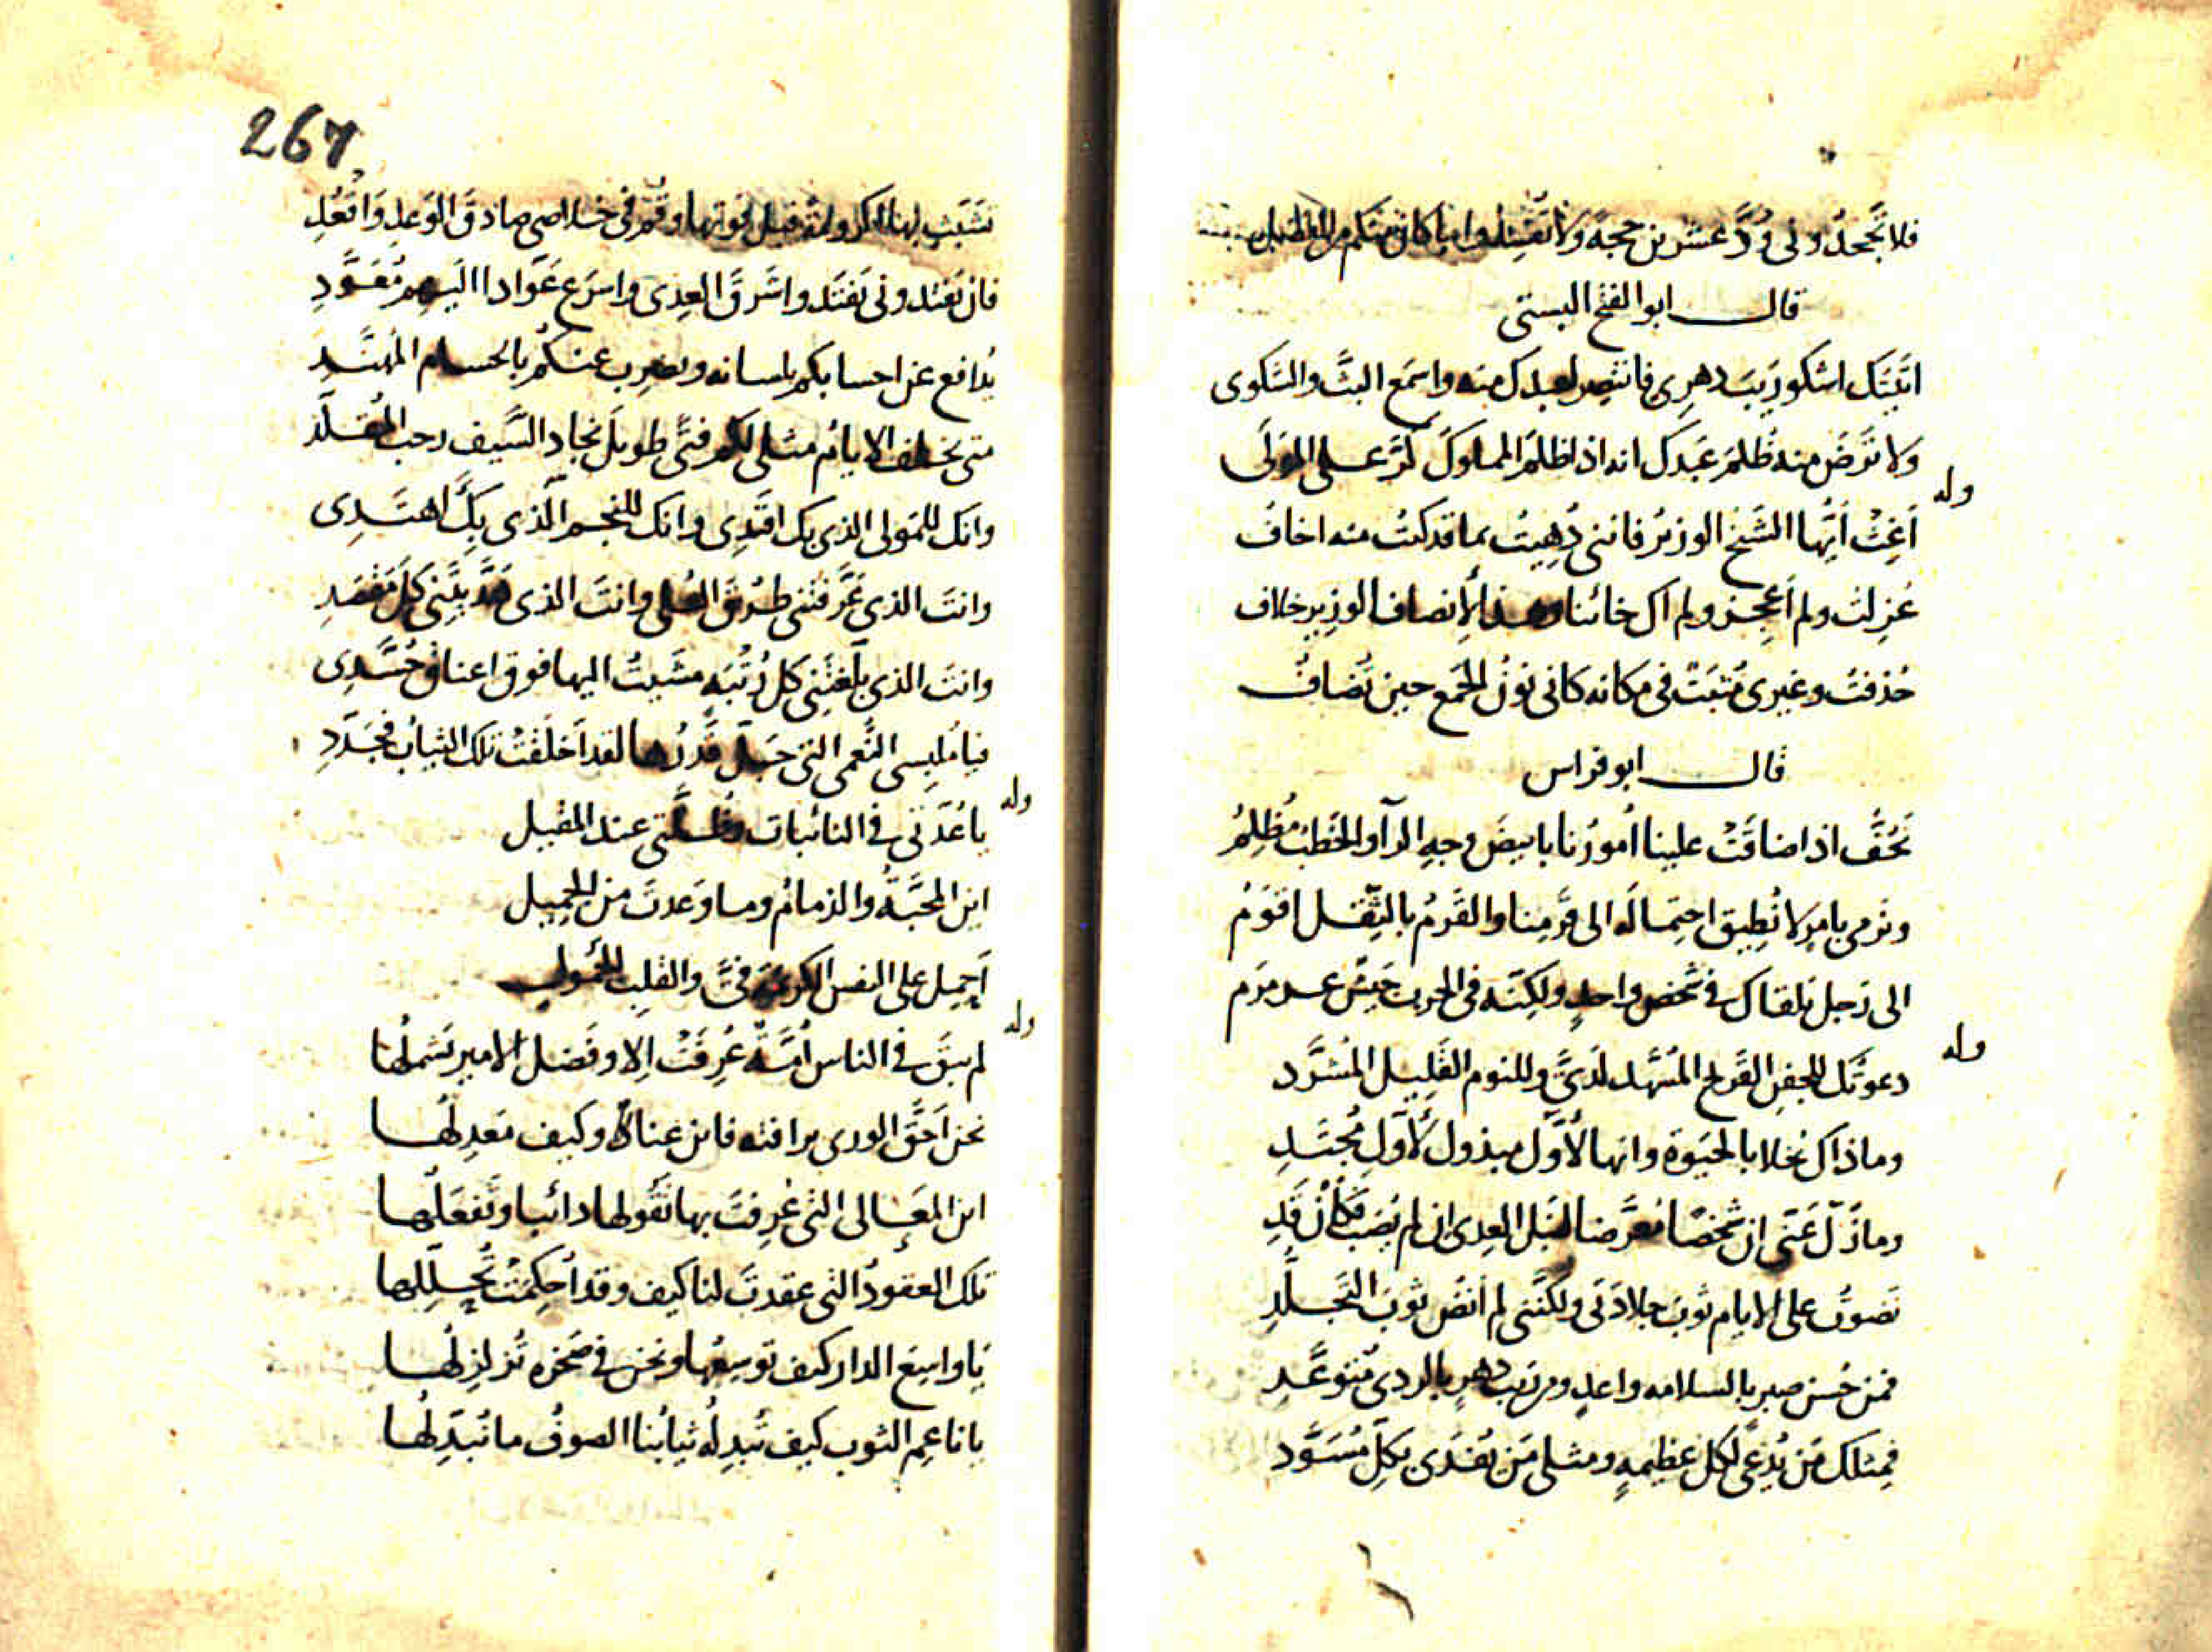 فلا تَجحدُوني وُدَّ عشرين حجةً ولا
قال ابو الفتح البستي
اتيتك اشكو ريبَ دهرى فانتصِر لعبدك منه واسمَع البثَّ والشكوى
ولا تَرضَ منه ظُلمَ عَبدك انه اذا ظلم المملوك كرّ على المَولَى
وله
اَغِث ايُّها الشَّيخُ الوزيرُ فانني دُهِيتُ بما قد كنتُ منه اخافُ
عُزِلتُ ولم اَعجِز ولم اك خائنا وهذا لِإنصاف الوزيرِ خلاف
حُذفتُ وغيرى مُثبَتٌ في مكانه كانى نونُ الجَمع حين تُضافُ
قال ابو فراس
نَحُفُّ اذا ضاقَتْ علينا اُمورُنا بابيضَ وجهِ الرآى والخَطبُ مُظلِمُ
ونُرمى بامرٍ لا نُطِيق احتِمَالَه الى قَرمِنا والقَرمُ بالثِّقل اقوَمُ
الى رَجل تلقاك في شخص واحدٍ ولكِنّه في الحرب جَيش عرمرم
وله
دعوتُك للجفنِ القَريح المُسَهَّد لَدَىَّ وللنوم القَلِيل المُشرَّد
وما ذاك بُخلا بالحَيوة وانها لَأوّل مبذول لأوّلِ مُجتَدِ
وما زلَّ عَنّى انّ شخصًا مُعرَّضا لنَبل العِدى ان لم يُصَب فكأن قَدِ
نَضوتُ على الايام ثوبَ جلادَتى ولكنّنى لم اَنضُ ثوبَ التَّجلّدِ
فمن حُسن صبرٍ بالسلامه واعدٍ ومن ريب دهرٍ بالردى متوعّدِ
فمثلك مَن يُدعَى لكل عظيمهٍ ومثلى مَن يُفدَى بكلّ مُسَوَّد
267
تَشَبَّث بها اكرومة قبل فوتها وقم في خلاصى صادقَ الوَعدِ وَاقعُدِ
فان تفتدونى تَفتدوا شرَّقَ العِدى واسرَع عَوَّادا اليهم مُعَوَّدِ
يُدافع عن احسابكم بلسانه ويضرِب عنكُم بالحسام المُهنَّدِ
متى تخلف الايام مثلى لكم فتًى طويلَ نجادِ السَّيف رحب المُقلَّد
وانك للمَولى الذى بك اقتَدِى وانك للنجم الّذى بك اَهتَدِى
وانتَ الذى عَرَّفتَنى طُرُقَ العُلى وانتَ الذى هَدَّيتَنى كُلّ مَقصَدِ
وانتَ الذى بلّغتَنى كل رُتبَهٍ مشَيتُ اليها فوق اعناق حُسَّدِى
فيا مُلبِسى النُّعمى التى جَلّ قَدرُها لقد اَخلَقَتْ تلك الثيابُ فجَدِّدِ
وله
يا عُدّتى في النائبات وظُلّتى عند المقيل
اين المَحبَّةُ والذمامُ وما وَعَدتَ من الجميل
اَجمِل على النفس الكريمَة فىَّ والقلب الحَمول
وله
لم يبقَ في الناس اُمّةٌ عُرِفَتْ الا وفَضل الامير يَشملُها
نحن اَحَقُّ الورى برافته فاين عنا وكيف مَعدِلُها
اين المَعالى التى عُرِفتَ بها تقولها دائبا وتَفعَلُها
تلك العقودُ التى عقدتَ لنا كيف وقد اُحكِمَتْ تُحلِّلها
يا واسِعَ الدار كيف توسِعُها ونحن في صَخره نُزَلزِلُها
يا ناعِم الثوب كيف تُبدِلُه ثيابُنا الصوفُ ما نُبَدّلُها